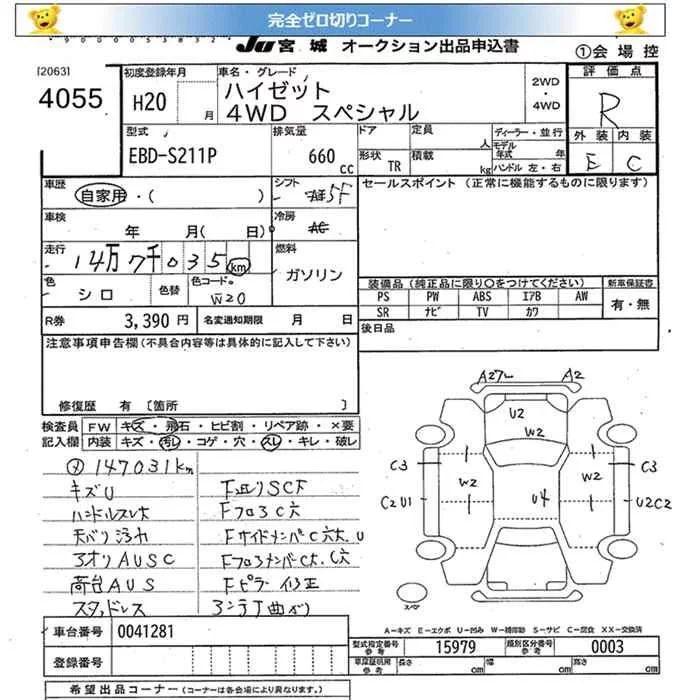 完全ゼロ切りコーナー
90000053832
JU 宮城 オークション出品申込書
①会場控
[2063]
4055
初度登録年月
H20 月
車名・グレード
ハイゼット
4WD スペシャル
2WD
・
4WD
評価点
R
外装 内装
E C
型式
EBD-S211P
排気量
660 cc
ドア
形状 TR
定員 人
積載 kg
ディーラー・並行
モデル年式 年
ハンドル 左・右
車歴
自家用・( )
シフト
5F
セールスポイント (正常に機能するものに限ります)
車検
年 月( 日)
冷房
AC
走行
14万7千035km
燃料
ガソリン
色
シロ
色替
色コード
W20
装備品(純正品に限り○をつけてください)
新車保証書
PS PW ABS エアB AW
有・無
SR ナビ TV カワ
R券 3,390 円
名変通知期限 月 日
後日品
注意事項申告欄(不具合内容等は具体的に記入して下さい)
修復歴 有 〔箇所 〕
検査員記入欄
FW キズ・飛石・ヒビ割・リペア跡・×要
内装 キズ・汚レ・コゲ・穴・スレ・キレ・破レ
メ 147031km
キズU
ハンドルスレ大
天バリ汚れ
アオリAUSC
荷台AUS
スタッドレス
F廻りSC下
FフロアC穴
FサイドメンバーC穴大.U
FフロアメンバーC大.C穴
Fピラー修正
アンテナ曲がり
A2 A2
U2
W2
C3 C3
W2 W2
C2U1 U4 U2C2
スペア
A-キズ E-エクボ U-凹み W-補修跡 S-サビ C-腐食 XX-交換済
車台番号 0041281
登録番号
型式指定番号 参考 15979
類別区分番号 参考 0003
車庫証明用 参考 長さ cm 幅 cm 高さ cm
希望出品コーナー (コーナーは各会場により異なります。)